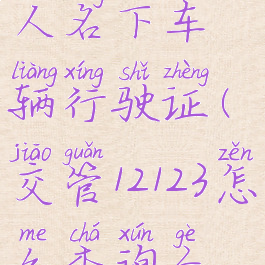 人名下车
liàng xíng shǐ zhèng
辆行驶证(
jiāo guǎn zěn
交管12123怎
me chá xún gè
么查询个